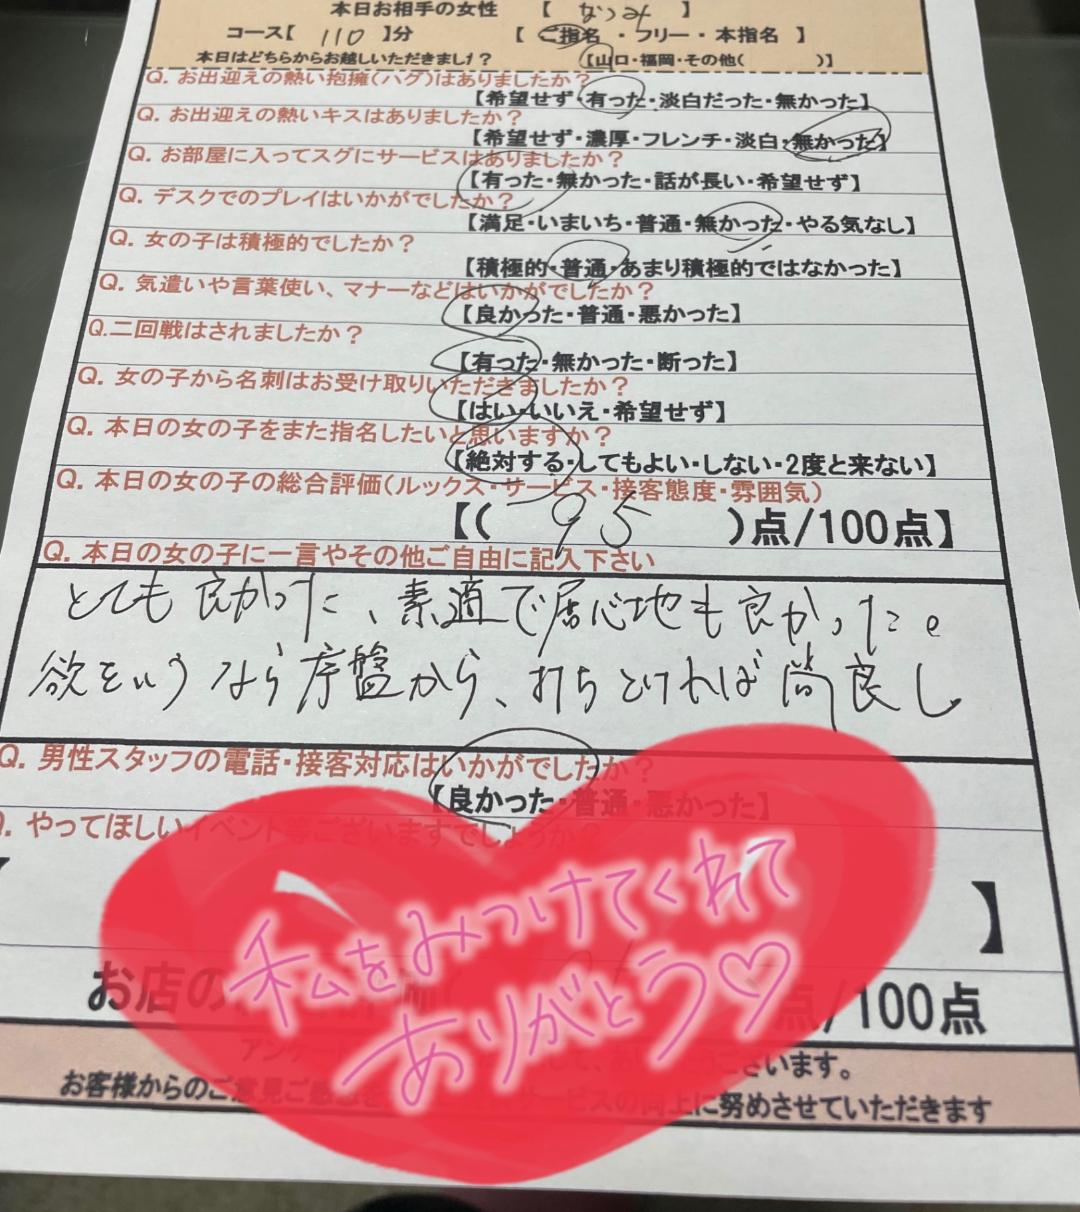 本日お相手の女性 【 なつみ 】
コース【 110 】分 【 ご指名 ・ フリー ・ 本指名 】
本日はどちらからお越しいただきました? 【山口・福岡・その他( )】
Q. お出迎えの熱い抱擁(ハグ)はありましたか?
【希望せず・有った・淡白だった・無かった】
Q. お出迎えの熱いキスはありましたか?
【希望せず・濃厚・フレンチ・淡白・無かった】
Q. お部屋に入ってスグにサービスはありましたか?
【有った・無かった・話が長い・希望せず】
Q. デスクでのプレイはいかがでしたか?
【満足・いまいち・普通・無かった・やる気なし】
Q. 女の子は積極的でしたか?
【積極的・普通・あまり積極的ではなかった】
Q. 気遣いや言葉使い、マナーなどはいかがでしたか?
【良かった・普通・悪かった】
Q.二回戦はされましたか?
【有った・無かった・断った】
Q. 女の子から名刺はお受け取りいただきましたか?
【はい・いいえ・希望せず】
Q. 本日の女の子をまた指名したいと思いますか?
【絶対する・してもよい・しない・2度と来ない】
Q. 本日の女の子の総合評価(ルックス・サービス・接客態度・雰囲気)
【( 95 )点/100点】
Q. 本日の女の子に一言やその他ご自由に記入下さい
とても良かった、素適で居心地も良かった。
欲をいうなら序盤から、打ちとければ尚良し
Q. 男性スタッフの電話・接客対応はいかがでしたか?
【良かった・普通・悪かった】
Q. やってほしいイベント等ございますでしょうか?
】
私をみつけてくれて
お店の 点/100点
ありがとう♡
アンケート ございます。
お客様からのご意見ご感想を サービスの向上に努めさせていただきます